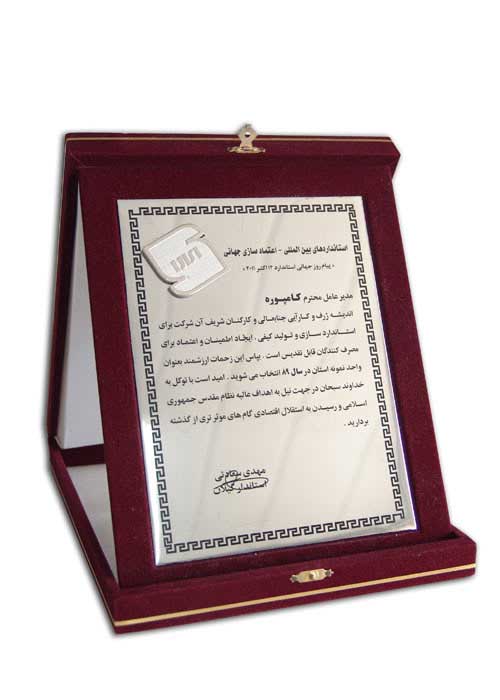 استانداردهای بین المللی - اعتماد سازی جهانی
« پیام روز جهانی استاندارد ۱۴ اکتبر ۲۰۱۱ »
مدیر عامل محترم کامپوره
اندیشه ژرف و کارآیی جنابعالی و کارکنان شریف آن شرکت برای
استاندارد سازی و تولید کیفی ، ایجاد اطمینان و اعتماد برای
مصرف کنندگان قابل تقدیس است . بپاس این زحمات ارزشمند بعنوان
واحد نمونه استان در سال ۸۹ انتخاب می شوید . امید است با توکل به
خداوند سبحان در جهت نیل به اهداف عالیه نظام مقدس جمهوری
اسلامی و رسیدن به استقلال اقتصادی گام های موثر تری از گذشته
بردارید .
مهدی سعادتی
استاندار گیلان